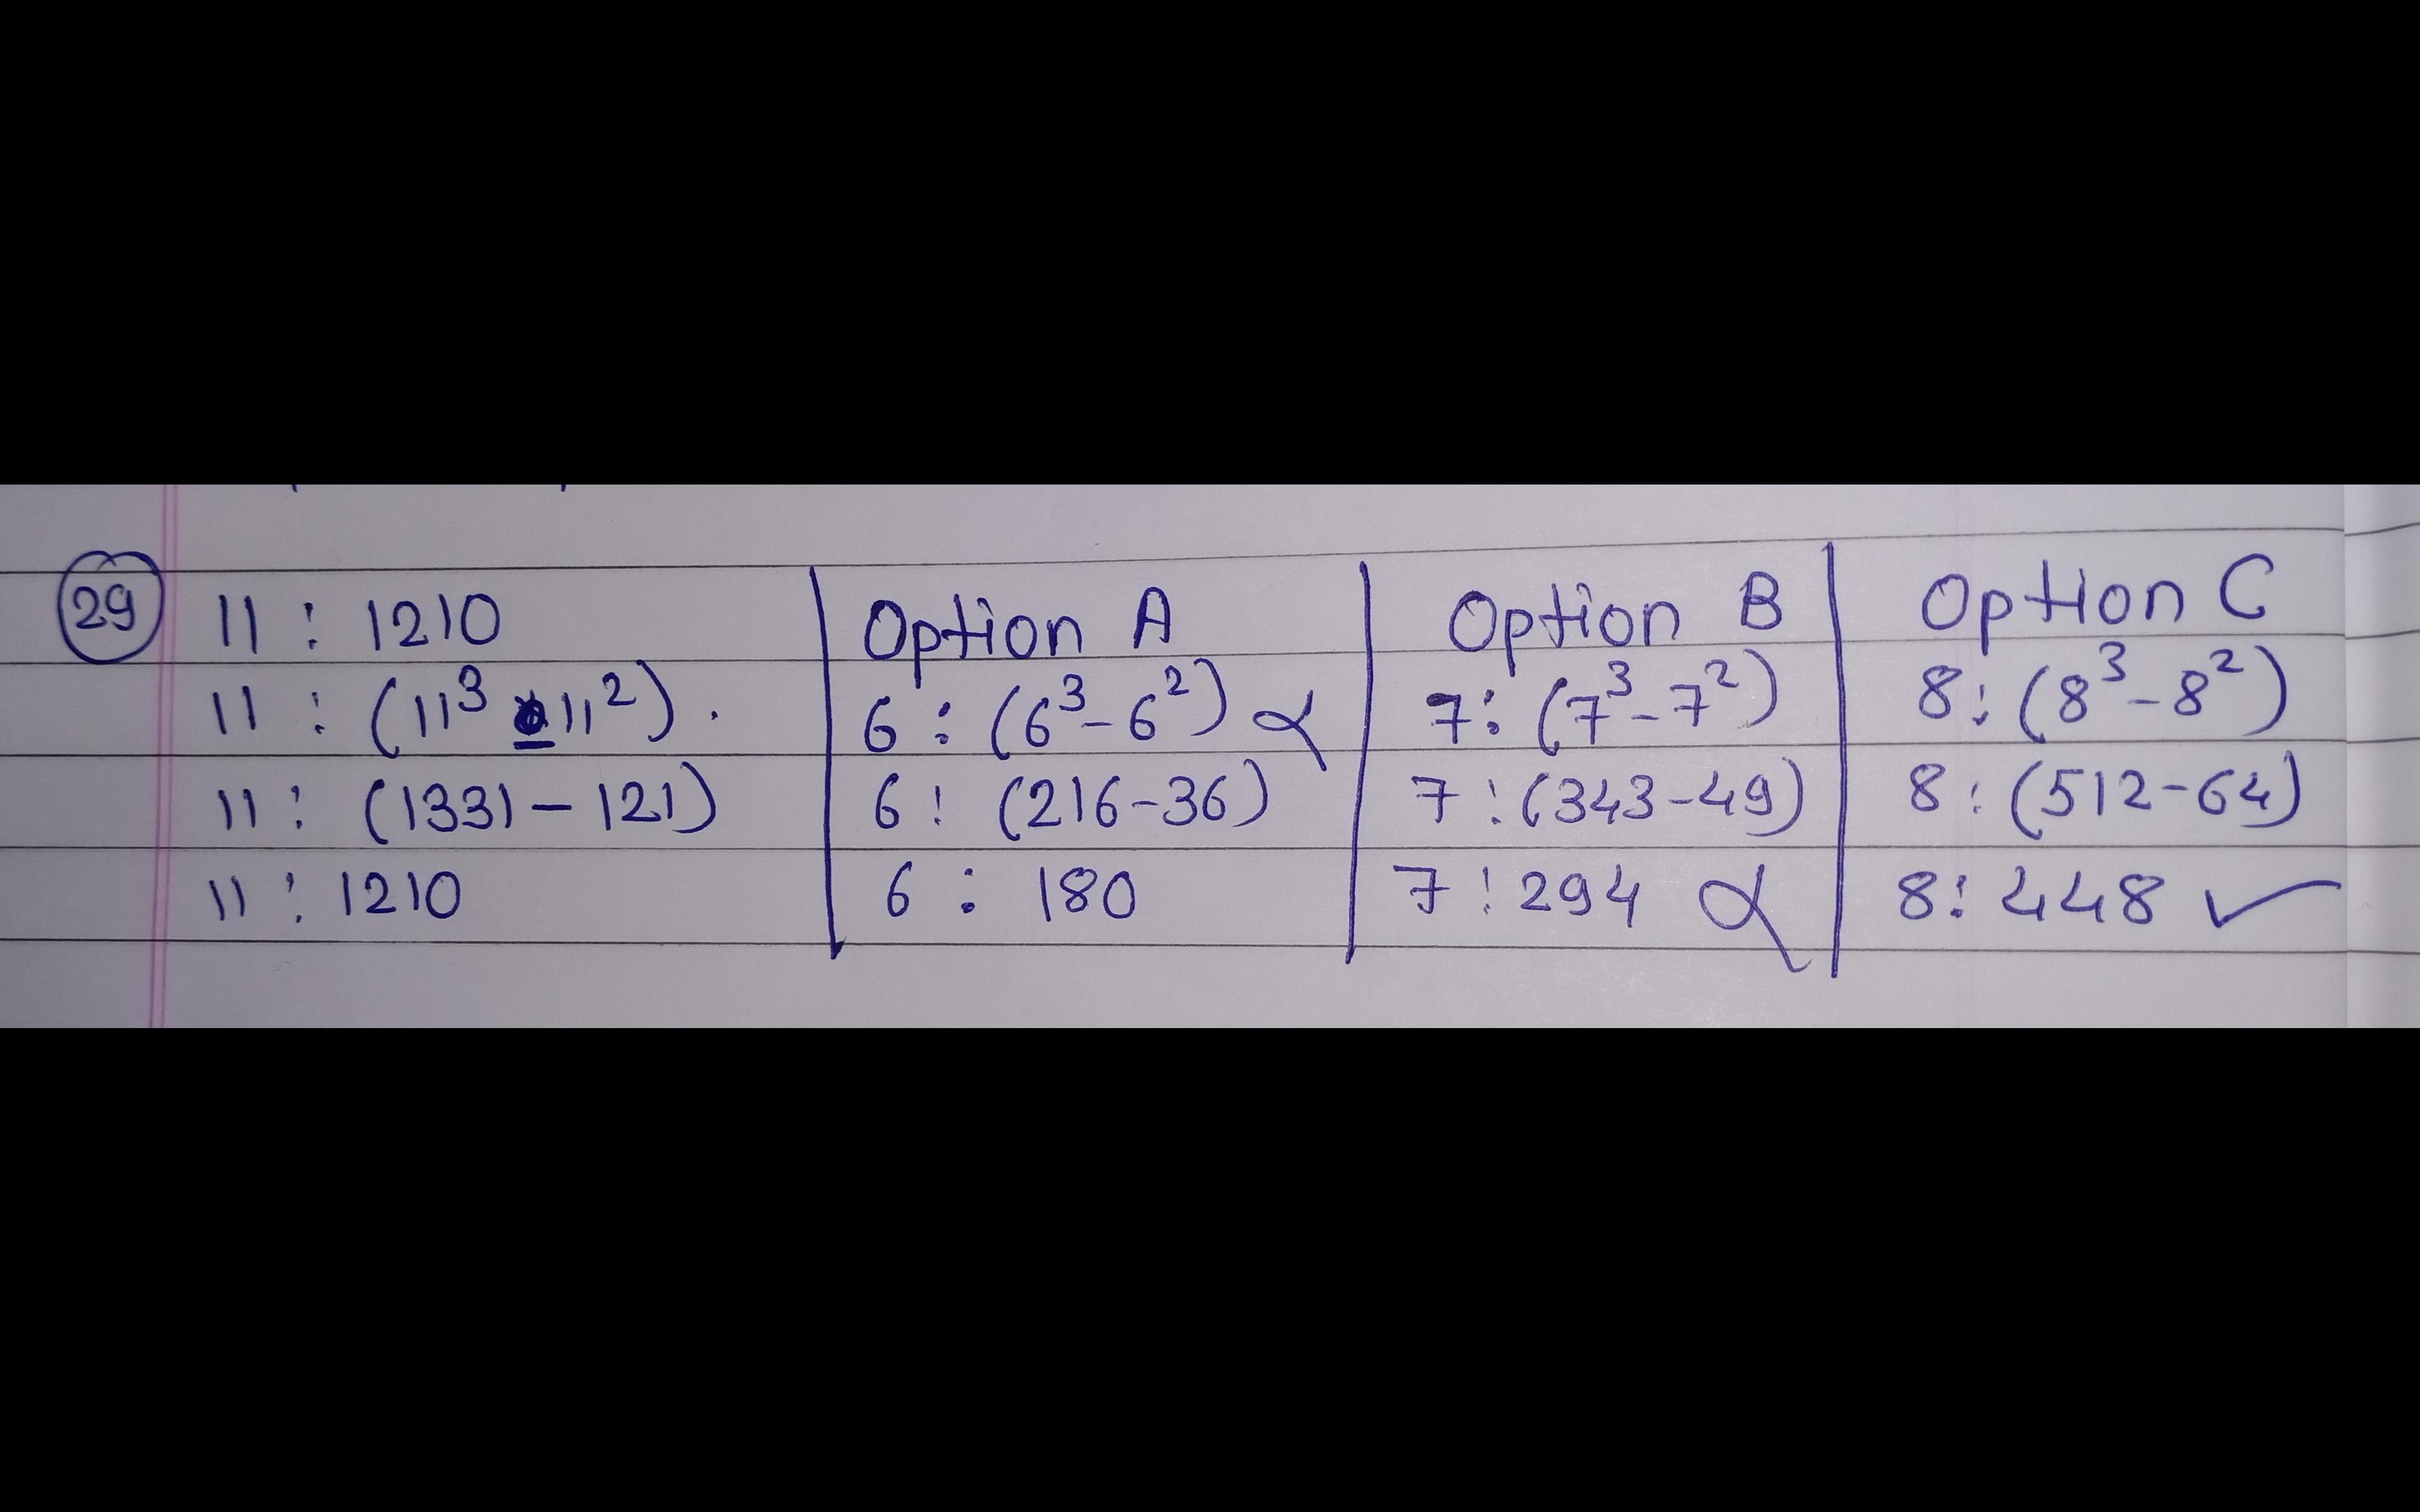 29
11 : 1210
11 : (11³ - 11²).
11 : (1331 - 121)
11 : 1210
Option A
6 : (6³ - 6²) ×
6 : (216-36)
6 : 180
Option B
7 : (7³ - 7²)
7 : (343-49)
7 : 294 ×
Option C
8 : (8³ - 8²)
8 : (512-64)
8 : 448 ✓